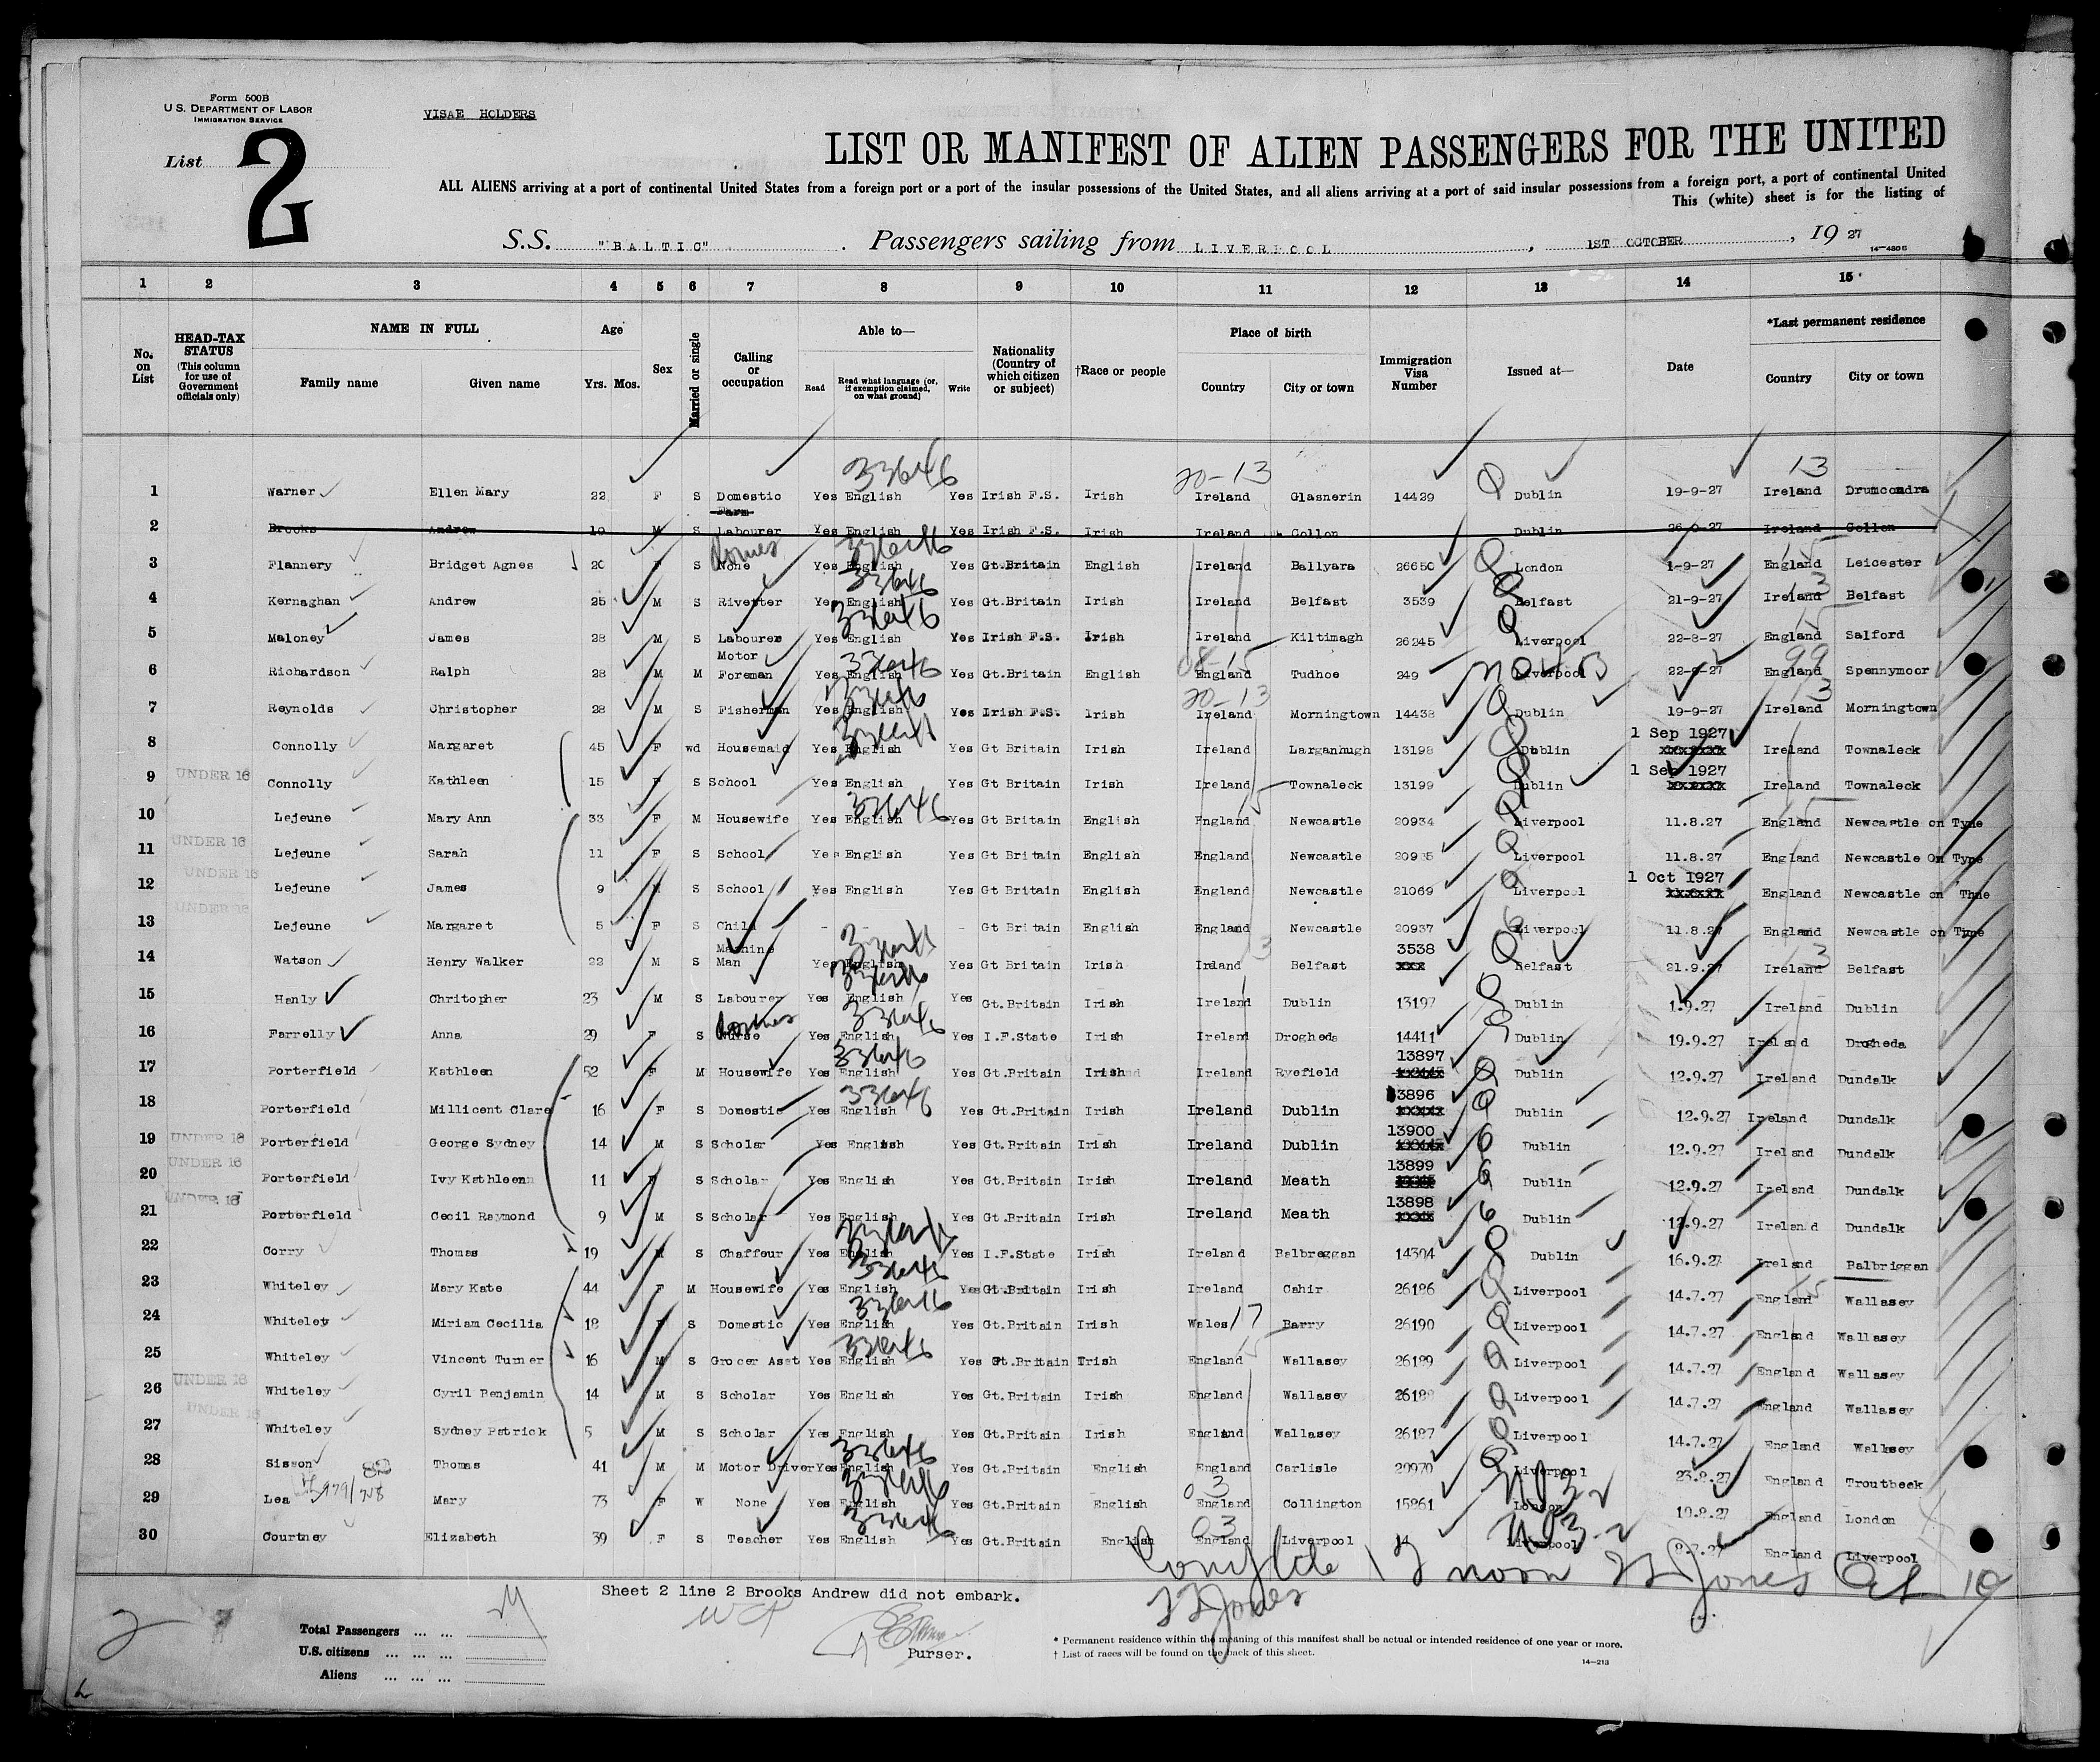 Form 500B
U.S. DEPARTMENT OF LABOR
IMMIGRATION SERVICE
VISAE HOLDERS
List 2
LIST OR MANIFEST OF ALIEN PASSENGERS FOR THE UNITED
ALL ALIENS arriving at a port of continental United States from a foreign port or a port of the insular possessions of the United States, and all aliens arriving at a port of said insular possessions from a foreign port, a port of continental United
This (white) sheet is for the listing of
S.S. "BALTIC" . Passengers sailing from LIVERPOOL , 1ST OCTOBER , 19 27
14-430B
1 2 3 4 5 6 7 8 9 10 11 12 13 14 15
No. on List
HEAD-TAX STATUS (This column for use of Government officials only)
NAME IN FULL Family name Given name
Age Yrs. Mos.
Sex
Married or single
Calling or occupation
Able to— Read Read what language (or, if exemption claimed, on what ground) Write
Nationality (Country of which citizen or subject)
†Race or people
Place of birth Country City or town
Immigration Visa Number
Issued at—
Date
*Last permanent residence Country City or town
33646 20-13 13
1 Warner Ellen Mary 22 F S Domestic Yes English Yes Irish F.S. Irish Ireland Glasnerin 14429 Dublin 19-9-27 Ireland Drumcondra
2 Brooks Andrew 19 M S Farm Labourer Yes English Yes Irish F.S. Irish Ireland Collon Dublin 26-9-27 Ireland Collon
3 Flannery Bridget Agnes 20 F S None Yes English Yes Gt.Britain English Ireland Ballyara 26650 London 1-9-27 England Leicester
4 Kernaghan Andrew 25 M S Rivetter Yes English Yes Gt.Britain Irish Ireland Belfast 3539 Belfast 21-9-27 Ireland Belfast
5 Maloney James 28 M S Labourer Yes English Yes Irish F.S. Irish Ireland Kiltimagh 26245 Liverpool 22-8-27 England Salford
6 Richardson Ralph 28 M M Motor Foreman Yes English Yes Gt.Britain English England Tudhoe 249 Liverpool 22-9-27 England Spennymoor
7 Reynolds Christopher 28 M S Fisherman Yes English Yes Irish F.S. Irish Ireland Morningtown 14438 Dublin 19-9-27 Ireland Morningtown
8 Connolly Margaret 45 F wd Housemaid Yes English Yes Gt Britain Irish Ireland Larganhugh 13198 Dublin 1 Sep 1927 Ireland Townaleck
9 UNDER 16 Connolly Kathleen 15 F S School Yes English Yes Gt Britain Irish Ireland Townaleck 13199 Dublin 1 Sep 1927 Ireland Townaleck
10 Lejeune Mary Ann 33 F M Housewife Yes English Yes Gt Britain English England Newcastle 20934 Liverpool 11.8.27 England Newcastle on Tyne
11 UNDER 16 Lejeune Sarah 11 F S School Yes English Yes Gt Britain English England Newcastle 20935 Liverpool 11.8.27 England Newcastle On Tyne
12 UNDER 16 Lejeune James 9 M S School Yes English Yes Gt Britain English England Newcastle 21069 Liverpool 1 Oct 1927 England Newcastle on Thne
13 UNDER 16 Lejeune Margaret 5 F S Child - - - Gt Britain English England Newcastle 20937 Liverpool 11.8.27 England Newcastle on Tyne
14 Watson Henry Walker 22 M S Machine Man Yes English Yes Gt Britain Irish Irland Belfast 3538 Belfast 21.9.27 Ireland Belfast
15 Hanly Chritopher 23 M S Labourer Yes English Yes Gt.Britain Irish Ireland Dublin 13197 Dublin 1.9.27 Ireland Dublin
16 Farrelly Anna 29 F S Nurse Yes English Yes I.F.State Irish Ireland Drogheda 14411 Dublin 19.9.27 Ireland Drogheda
17 Porterfield Kathleen 52 F M Housewife Yes English Yes Gt.Britain Irish Ireland Ryefield 13897 Dublin 12.9.27 Ireland Dundalk
18 Porterfield Millicent Clare 16 F S Domestic Yes English Yes Gt.Britain Irish Ireland Dublin 13896 Dublin 12.9.27 Ireland Dundalk
19 UNDER 16 Porterfield George Sydney 14 M S Scholar Yes English Yes Gt.Britain Irish Ireland Dublin 13900 Dublin 12.9.27 Ireland Dundalk
20 UNDER 16 Porterfield Ivy Kathleen 11 F S Scholar Yes English Yes Gt.Britain Irish Ireland Meath 13899 Dublin 12.9.27 Ireland Dundalk
21 UNDER 16 Porterfield Cecil Raymond 9 M S Scholar Yes English Yes Gt.Britain Irish Ireland Meath 13898 Dublin 12.9.27 Ireland Dundalk
22 Corry Thomas 19 M S Chaffeur Yes English Yes I.F.State Irish Ireland Balbreggan 14394 Dublin 16.9.27 Ireland Balbriggan
23 Whiteley Mary Kate 44 F M Housewife Yes English Yes Gt.Britain Irish Ireland Cahir 26186 Liverpool 14.7.27 England Wallasey
24 Whiteley Miriam Cecilia 18 F S Domestic Yes English Yes Gt.Britain Irish Wales 17 Barry 26190 Liverpool 14.7.27 England Wallasey
25 Whiteley Vincent Turner 16 M S Grocer Asst Yes English Yes Gt.Britain Irish England Wallasey 26189 Liverpool 14.7.27 England Wallasey
26 UNDER 16 Whiteley Cyril Benjamin 14 M S Scholar Yes English Yes Gt.Britain Irish England Wallasey 26188 Liverpool 14.7.27 England Wallasey
27 UNDER 16 Whiteley Sydney Patrick 5 M S Scholar Yes English Yes Gt.Britain Irish England Wallasey 26187 Liverpool 14.7.27 England Wallasey
28 Sisson Thomas 41 M M Motor Driver Yes English Yes Gt.Britain English England Carlisle 20970 Liverpool 23.8.27 England Troutbeck
29 Lea Mary 73 F W None Yes English Yes Gt.Britain English England Collington 15861 London 19.8.27 England London
30 Courtney Elizabeth 39 F S Teacher Yes English Yes Gt.Britain English England Liverpool 14 Liverpool 27 England Liverpool
Sheet 2 line 2 Brooks Andrew did not embark.
Total Passengers ... ...
U.S. citizens ... ... ...
Aliens ... ... ...
Purser.
* Permanent residence within the meaning of this manifest shall be actual or intended residence of one year or more.
† List of races will be found on the back of this sheet.
14-213